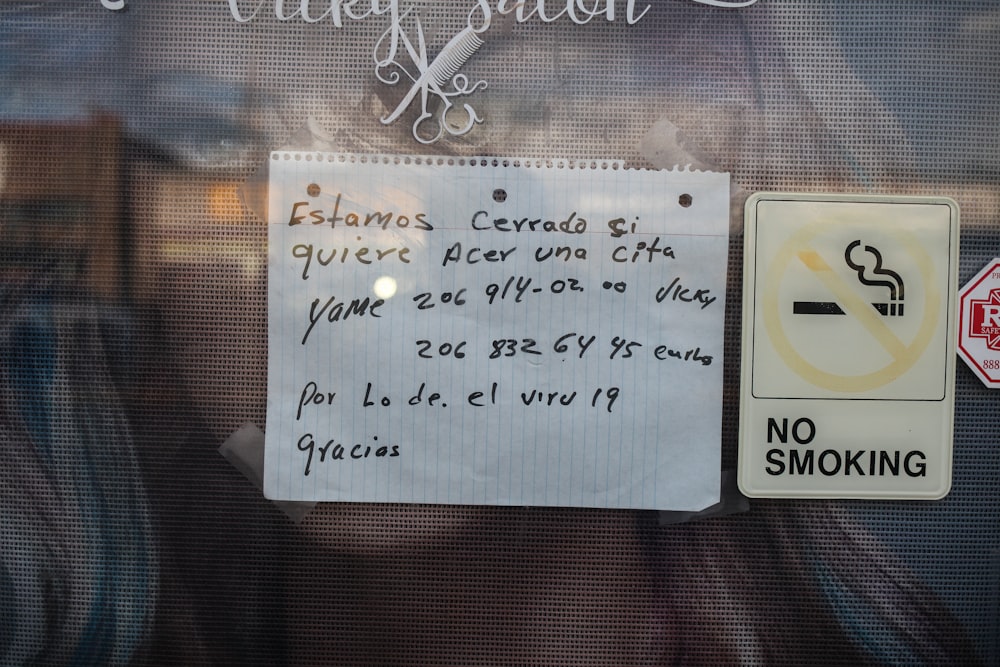 Vicky Salon
Estamos Cerrado si
quiere Acer una cita
Yame 206 914-02.00 Vicky
206 832 64 45 carlos
Por Lo de. el viru 19
gracias
NO
SMOKING
888